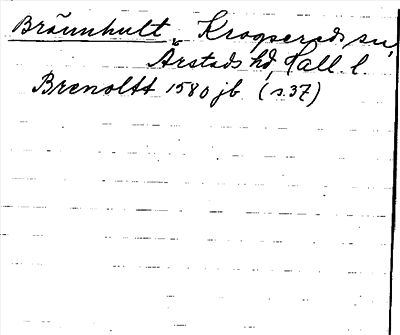 Bräunhult, Krogsereds sn,
Årstads hd, Hall. l.
Brenoltt 1580 jb (s. 37)